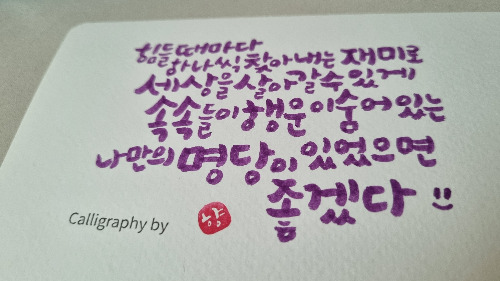 힘들때마다
하나씩 찾아내는 재미로
세상을 살아갈 수 있게
속속들이 행운이 숨어 있는
나만의 명당이 있었으면
좋겠다 :)
Calligraphy by 향